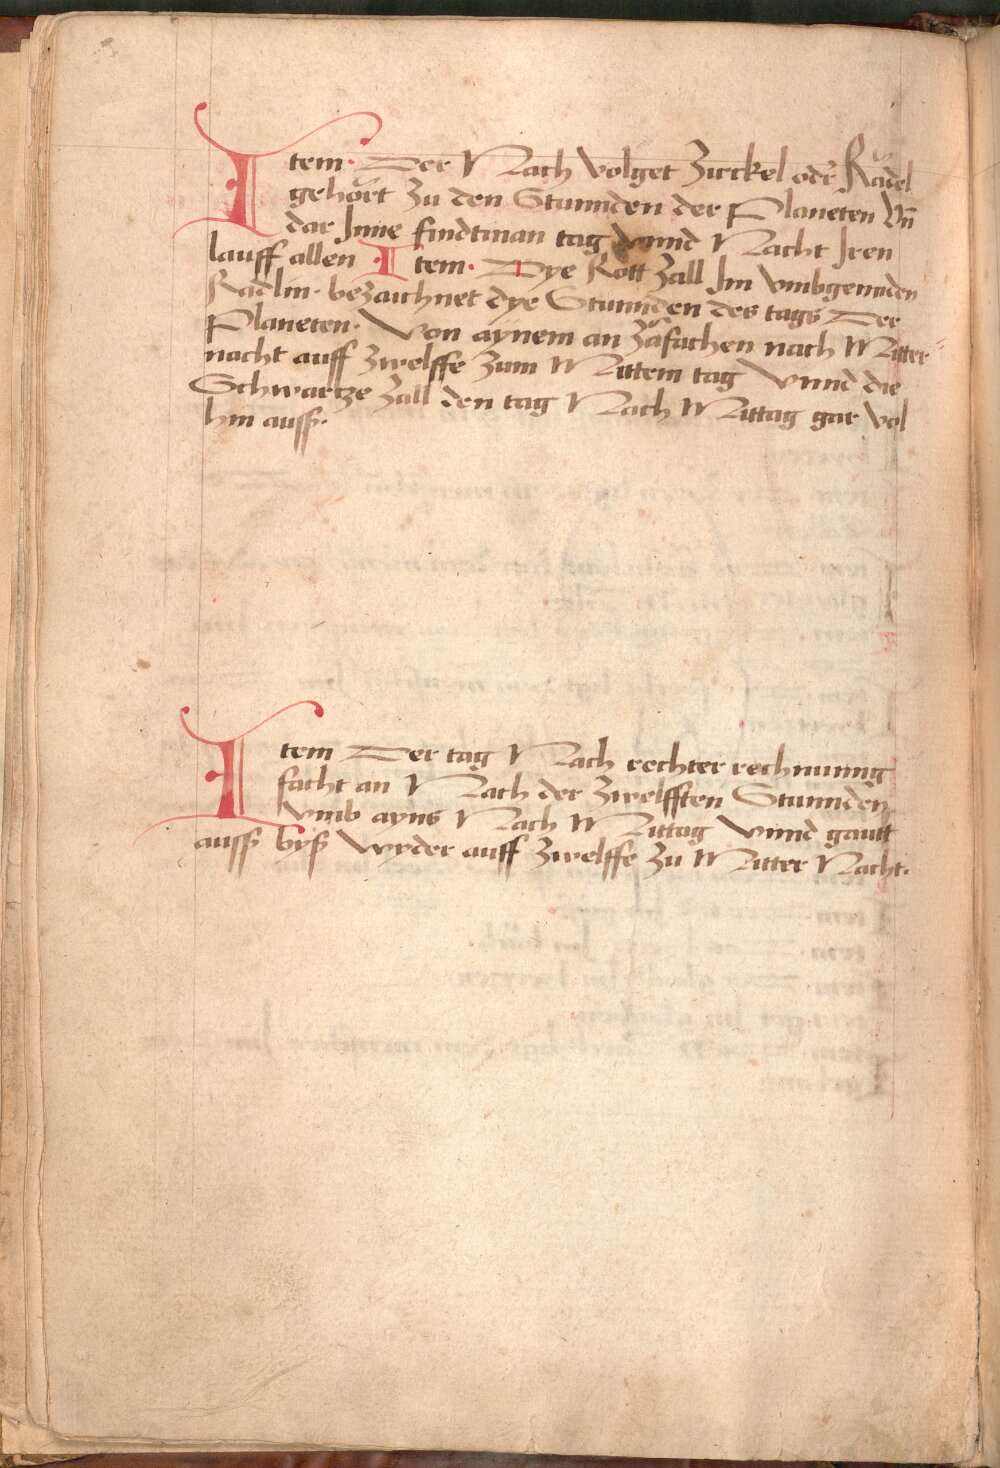 Item · Der Nach volget Zirckel oder Rädel
gehört Zu den Stunnden der Planeten Vn̄
dar Inne findtman tag vnnd Nacht Iren
lauff allen Item · Dye Rott Zall Im vmbgennden
Rädlin · bezaichnet dye Stunnden des tags Der
Planeten · Von aynem an Zäfachen nach Mitter
nacht auff Zwelffe Zum Mittem tag Vnnd die
Schwartze Zall den tag Nach Mittag gar vol
hin auss ·
Item Der tag Nach rechter rechnunng
facht an Nach der Zwelfften Stunnden
Vmb ayns Nach Mittag Vnnd gautt
auss byß Wyder auff Zwelffe Zu Mitter Nacht ·